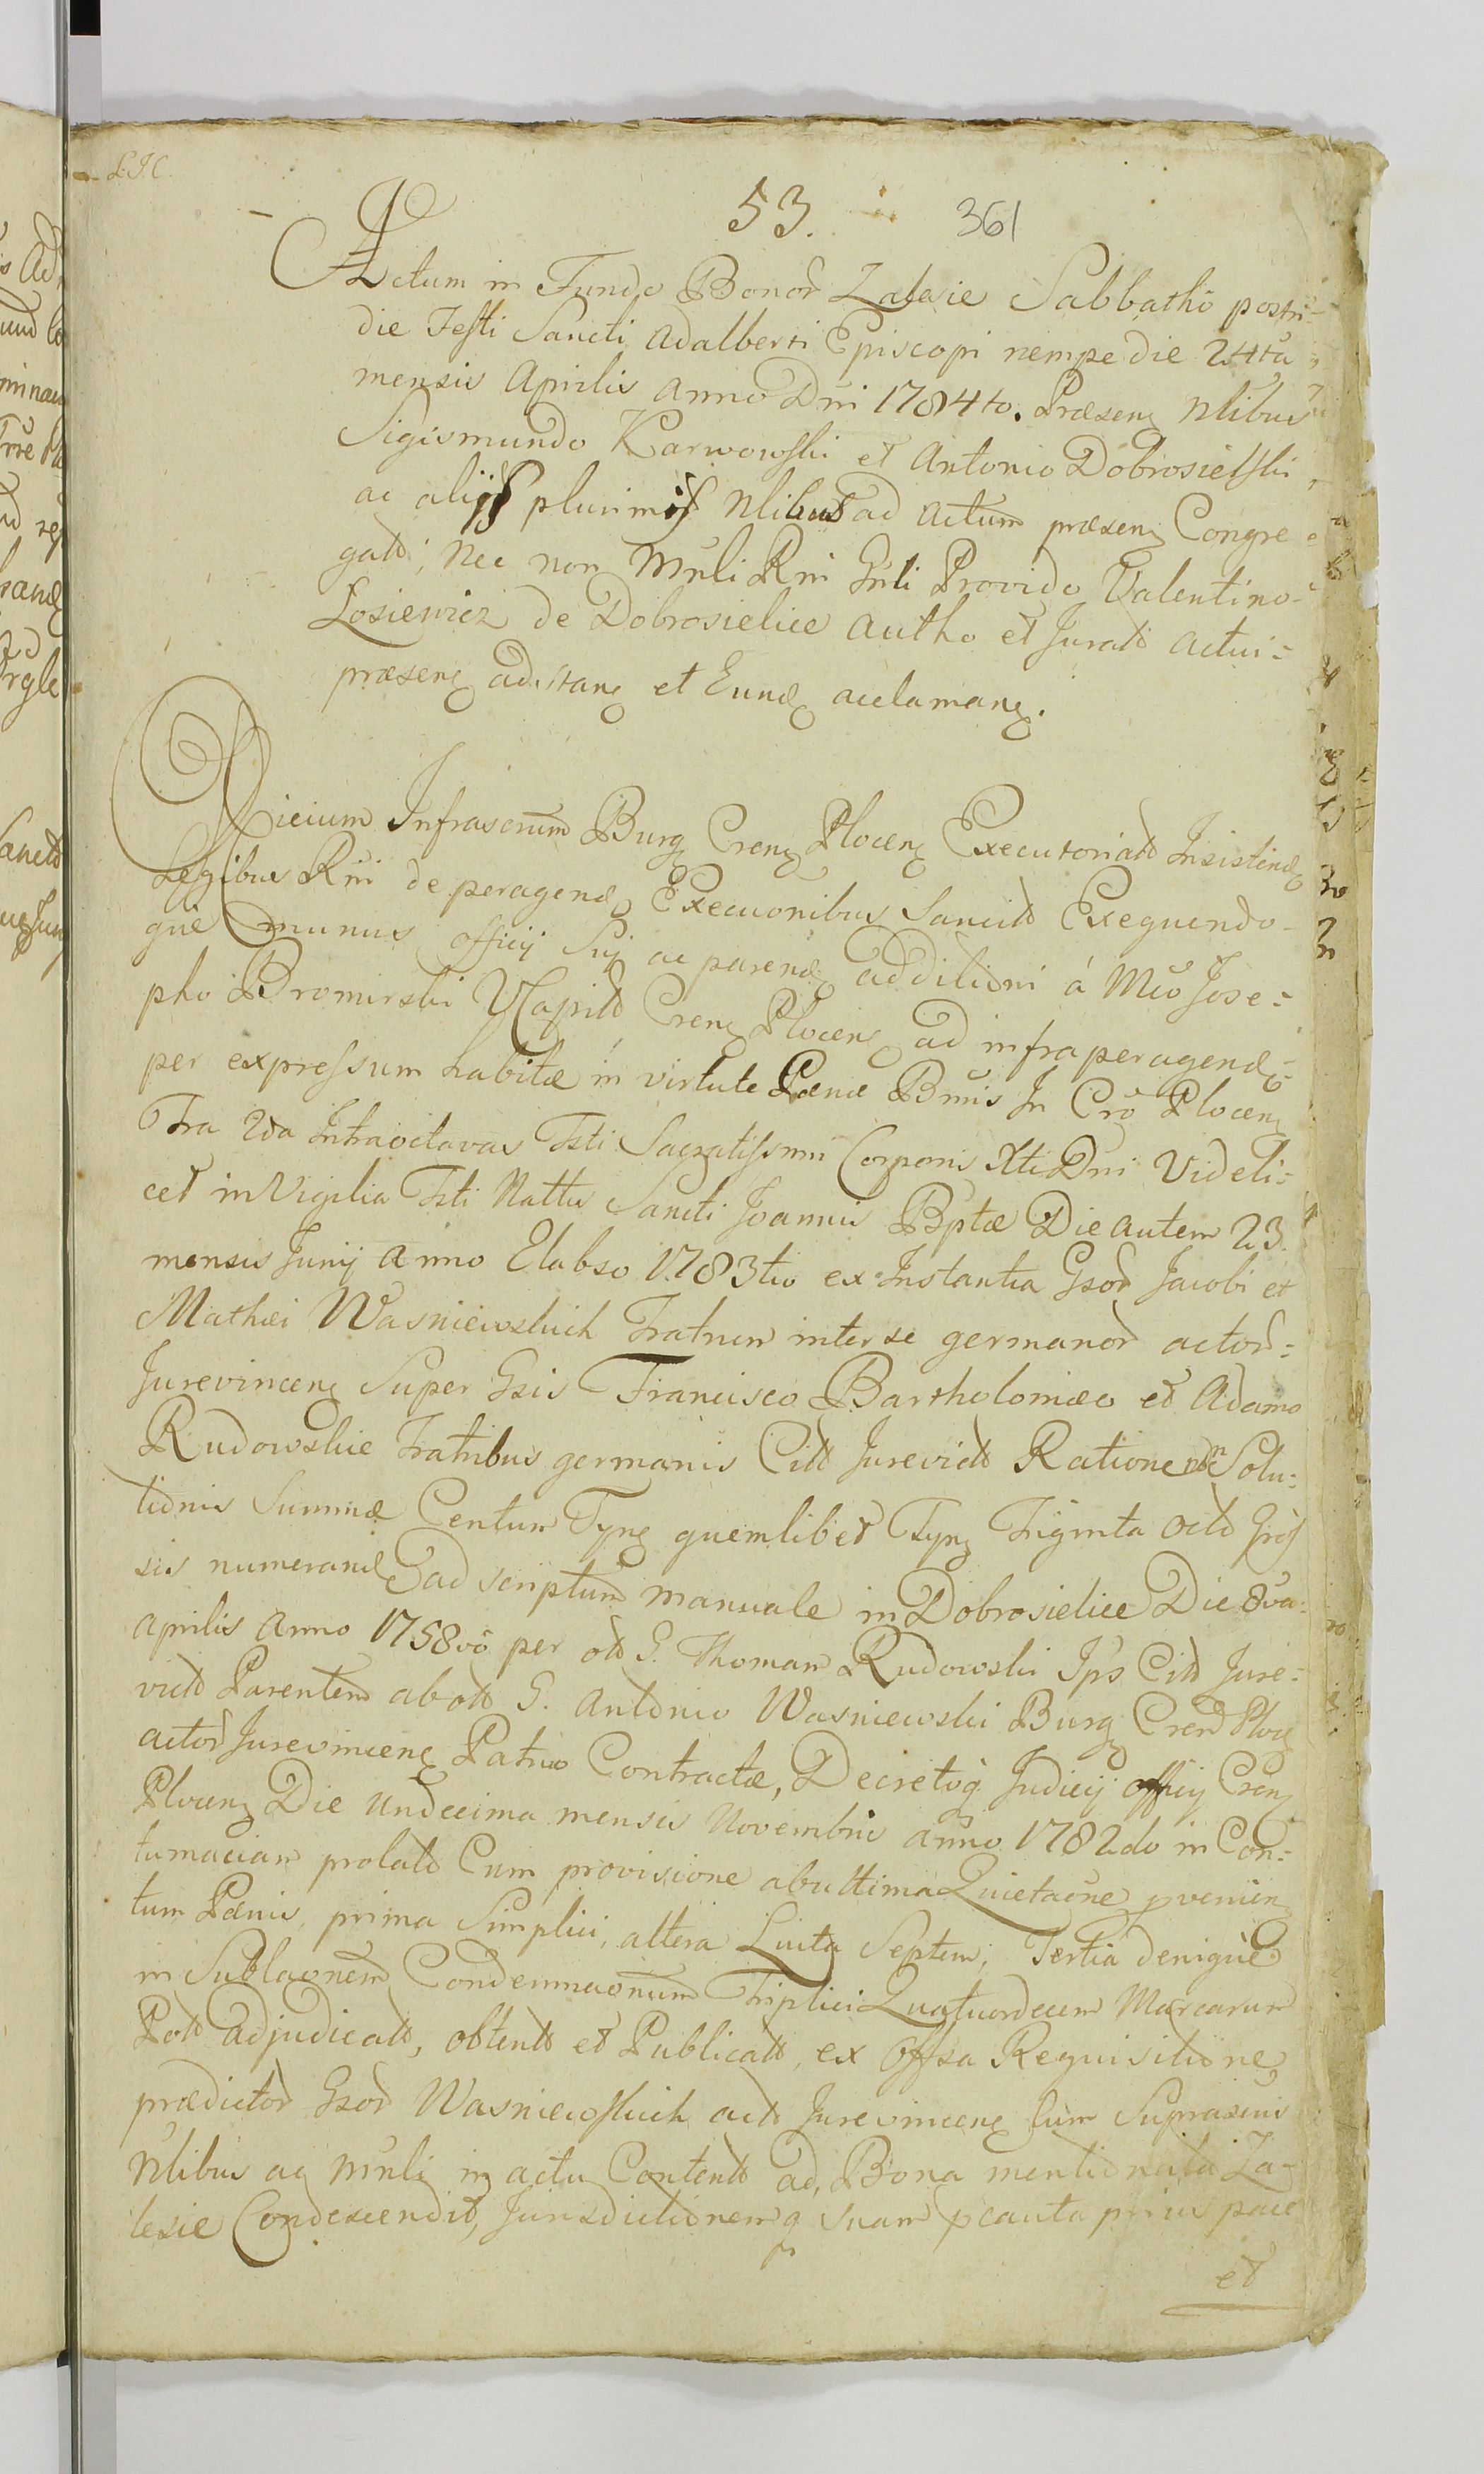 L.I.C.
53. 361
Actum in Fundo Bonor Zalesie Sabbatho postri=
die Festi Sancti Adalberti Episcopi nempe die 24ta
mensis Aprilis Anno Dni 1784to. Præsen Nlibus
Sigismundo Karwowski et Antonio Dobrosielski
ac alijs plurimis Nlibus ad Actum præsen Congre
gatt; Nec non Mnli Rni Gnli Provido Valentino=
Łosiewicz de Dobrosielice Autho et Juratt Actui=
præsen adstan et Eund acclaman.
Officium Infrascrum Burg Cren Plocen Executoriatt Insistend
Legibus Rni de peragend Execuonibus Sancitt Exequendo-
que munus officij Suj ac parend addilidni á Mco Jose=
pho Bromirski VCapitt Cren Plocen ad infraperagend=
per expressum habitæ in virtute Pænæ Bnnis In Cro Plocen
Fra 2da Intraoctavas Fsti Sacratissimi Corporis Xti Dni Videli=
cet in Vigilia Fsti Nattis Sancti Joannis Bptæ Die autem 23.
mensis Junij Anno Elabso 1783tio ex Instantia Gsor Jacobi et
Mathæi Wasniewskich Fratrum inter se germanor actor=
Jurevincen Super Gsis Francisco Bartholomæo et Adamo
Rudowskie Fratribus germanis Citt Jurevictt Ratione Solu=
tionis Summæ Centum Tyn quemlibet Tyn Triginta octo Gros
sis numerand ad scriptum manuale in Dobrosielice Die 8va
Aprilis Anno 1758vo per ott G. Thomam Rudowski Ips Citt Jure=
victt Parentem ab ott G. Antonio Wasniewski Burg Cren Ploc
actor Jurevincen Patruo Contractæ, Decretoq Judicij officij Cren
Plocen Die Undecima mensis Novembris anno 1782do in Con=
tumaciam prolatt Cum provisione ab ultima Quietaone pvenien
tum Pænis, prima Simplici, altera Luita Septem, Tertia denique
in Sublaonem Condemnaonum Triplici Quatuordecem Marcarum
Pott adjudicatt, obtentt et Publicatt, ex Offsa Requisitione
prædictor Gsor Wasniewskich actt Jurevincen cum Suprascris
Nlibus ac Mnli in actu Contentt ad Bona mentionata Za=
lesie Condescendit, Jurisdictionemq suam pcauta prius pace
et